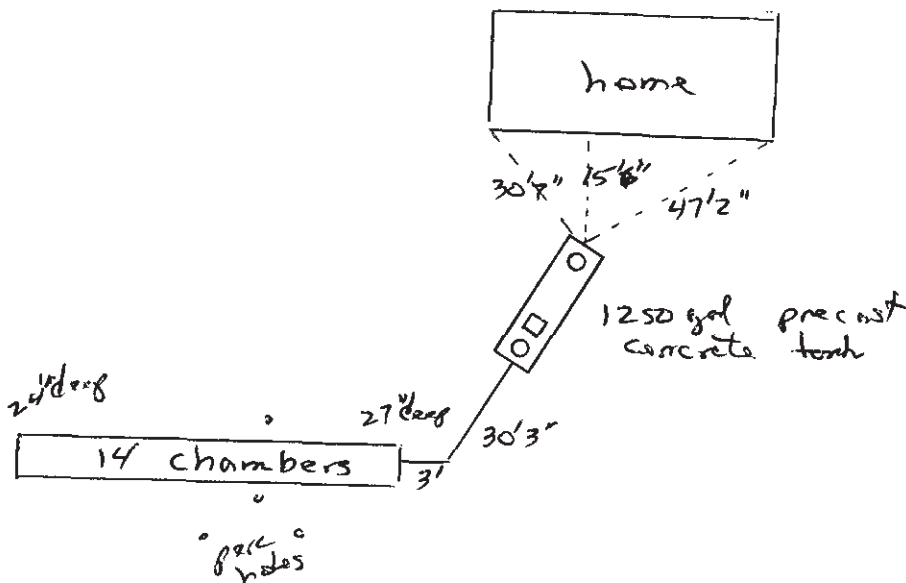 home
30'8" 15'6" 47'2"
1250 gal precast
concrete tank
24" deep
27" deep
30'3"
14 chambers
3'
perc
holes